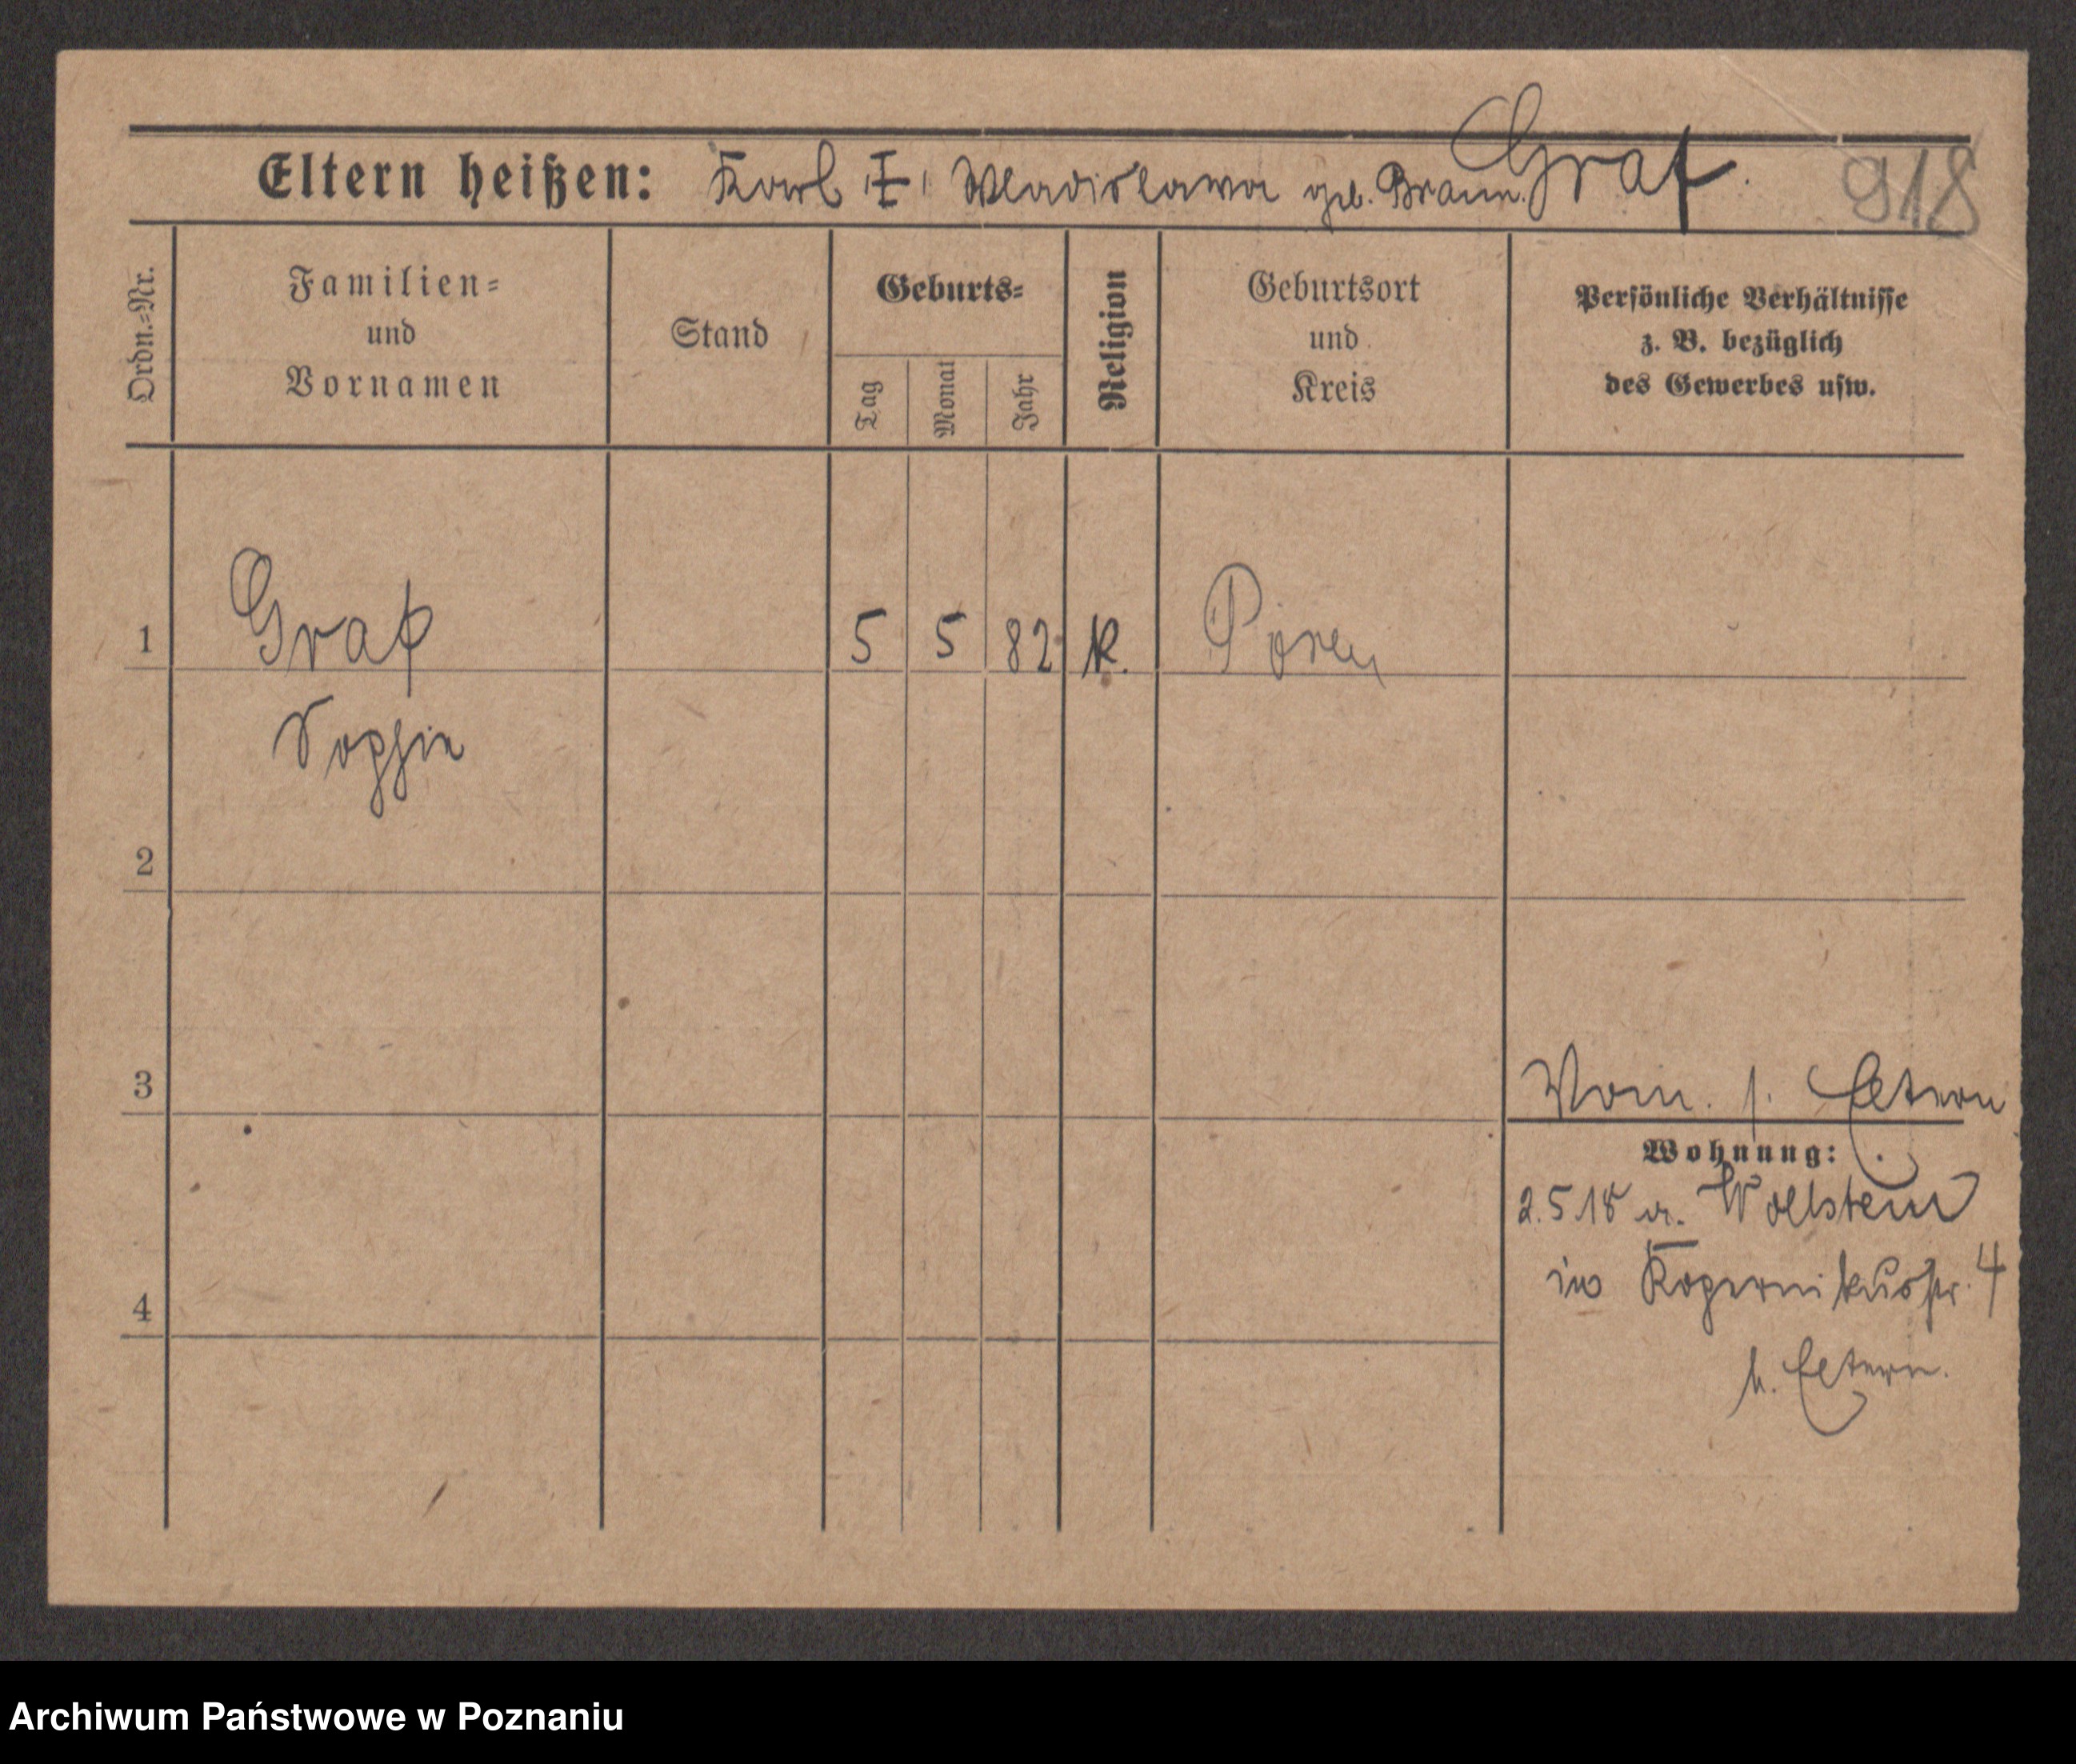 Graf.
Eltern heißen: Karl, Wladislawa geb. Braun.
918
Ordn.=Nr.
Familien=
und
Vornamen
Stand
Geburts=
Tag
Monat
Jahr
Religion
Geburtsort
und
Kreis
Persönliche Verhältnisse
z. B. bezüglich
des Gewerbes usw.
1
Graf
5
5
82
K.
Posen
Sophie
2
3
Vorm. s. Eltern
Wohnung:
2.5.18 v. Wollstein
in Kopernikusstr. 4
b. Eltern.
4
Archiwum Państwowe w Poznaniu